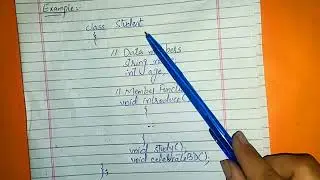 Example:
class Student
{
// Data members
string
int age,
// Member Func
void introduce(
{
...
}
void study(),
void celebrateBD();
};